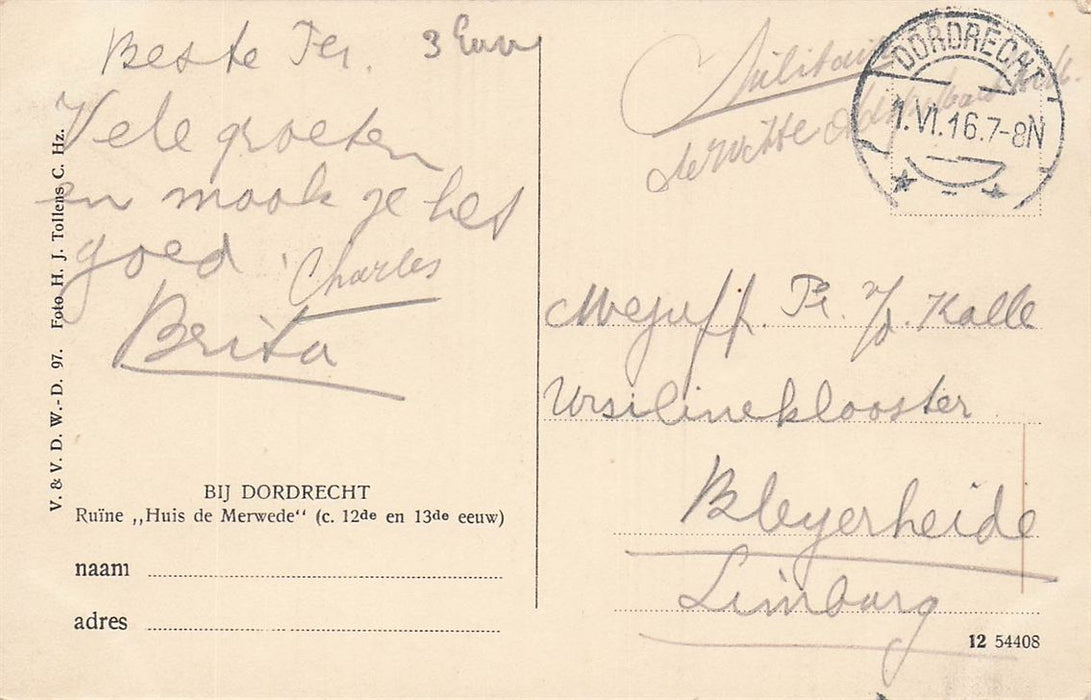 Beste Tr. 3 Euro
Vele groeten
en maak je het
goed.
Charles
Brita
V. & V. D. W.-D. 97. Foto H. J. Tollens C. Hz.
BIJ DORDRECHT
Ruïne „Huis de Merwede“ (c. 12de en 13de eeuw)
naam
adres
Militair
de Witte
DORDRECHT
1.VI.16.7-8N
Mejuff. Tr. v/d. Kalle
Ursilineklooster
Bleyerheide
Limburg
12 54408